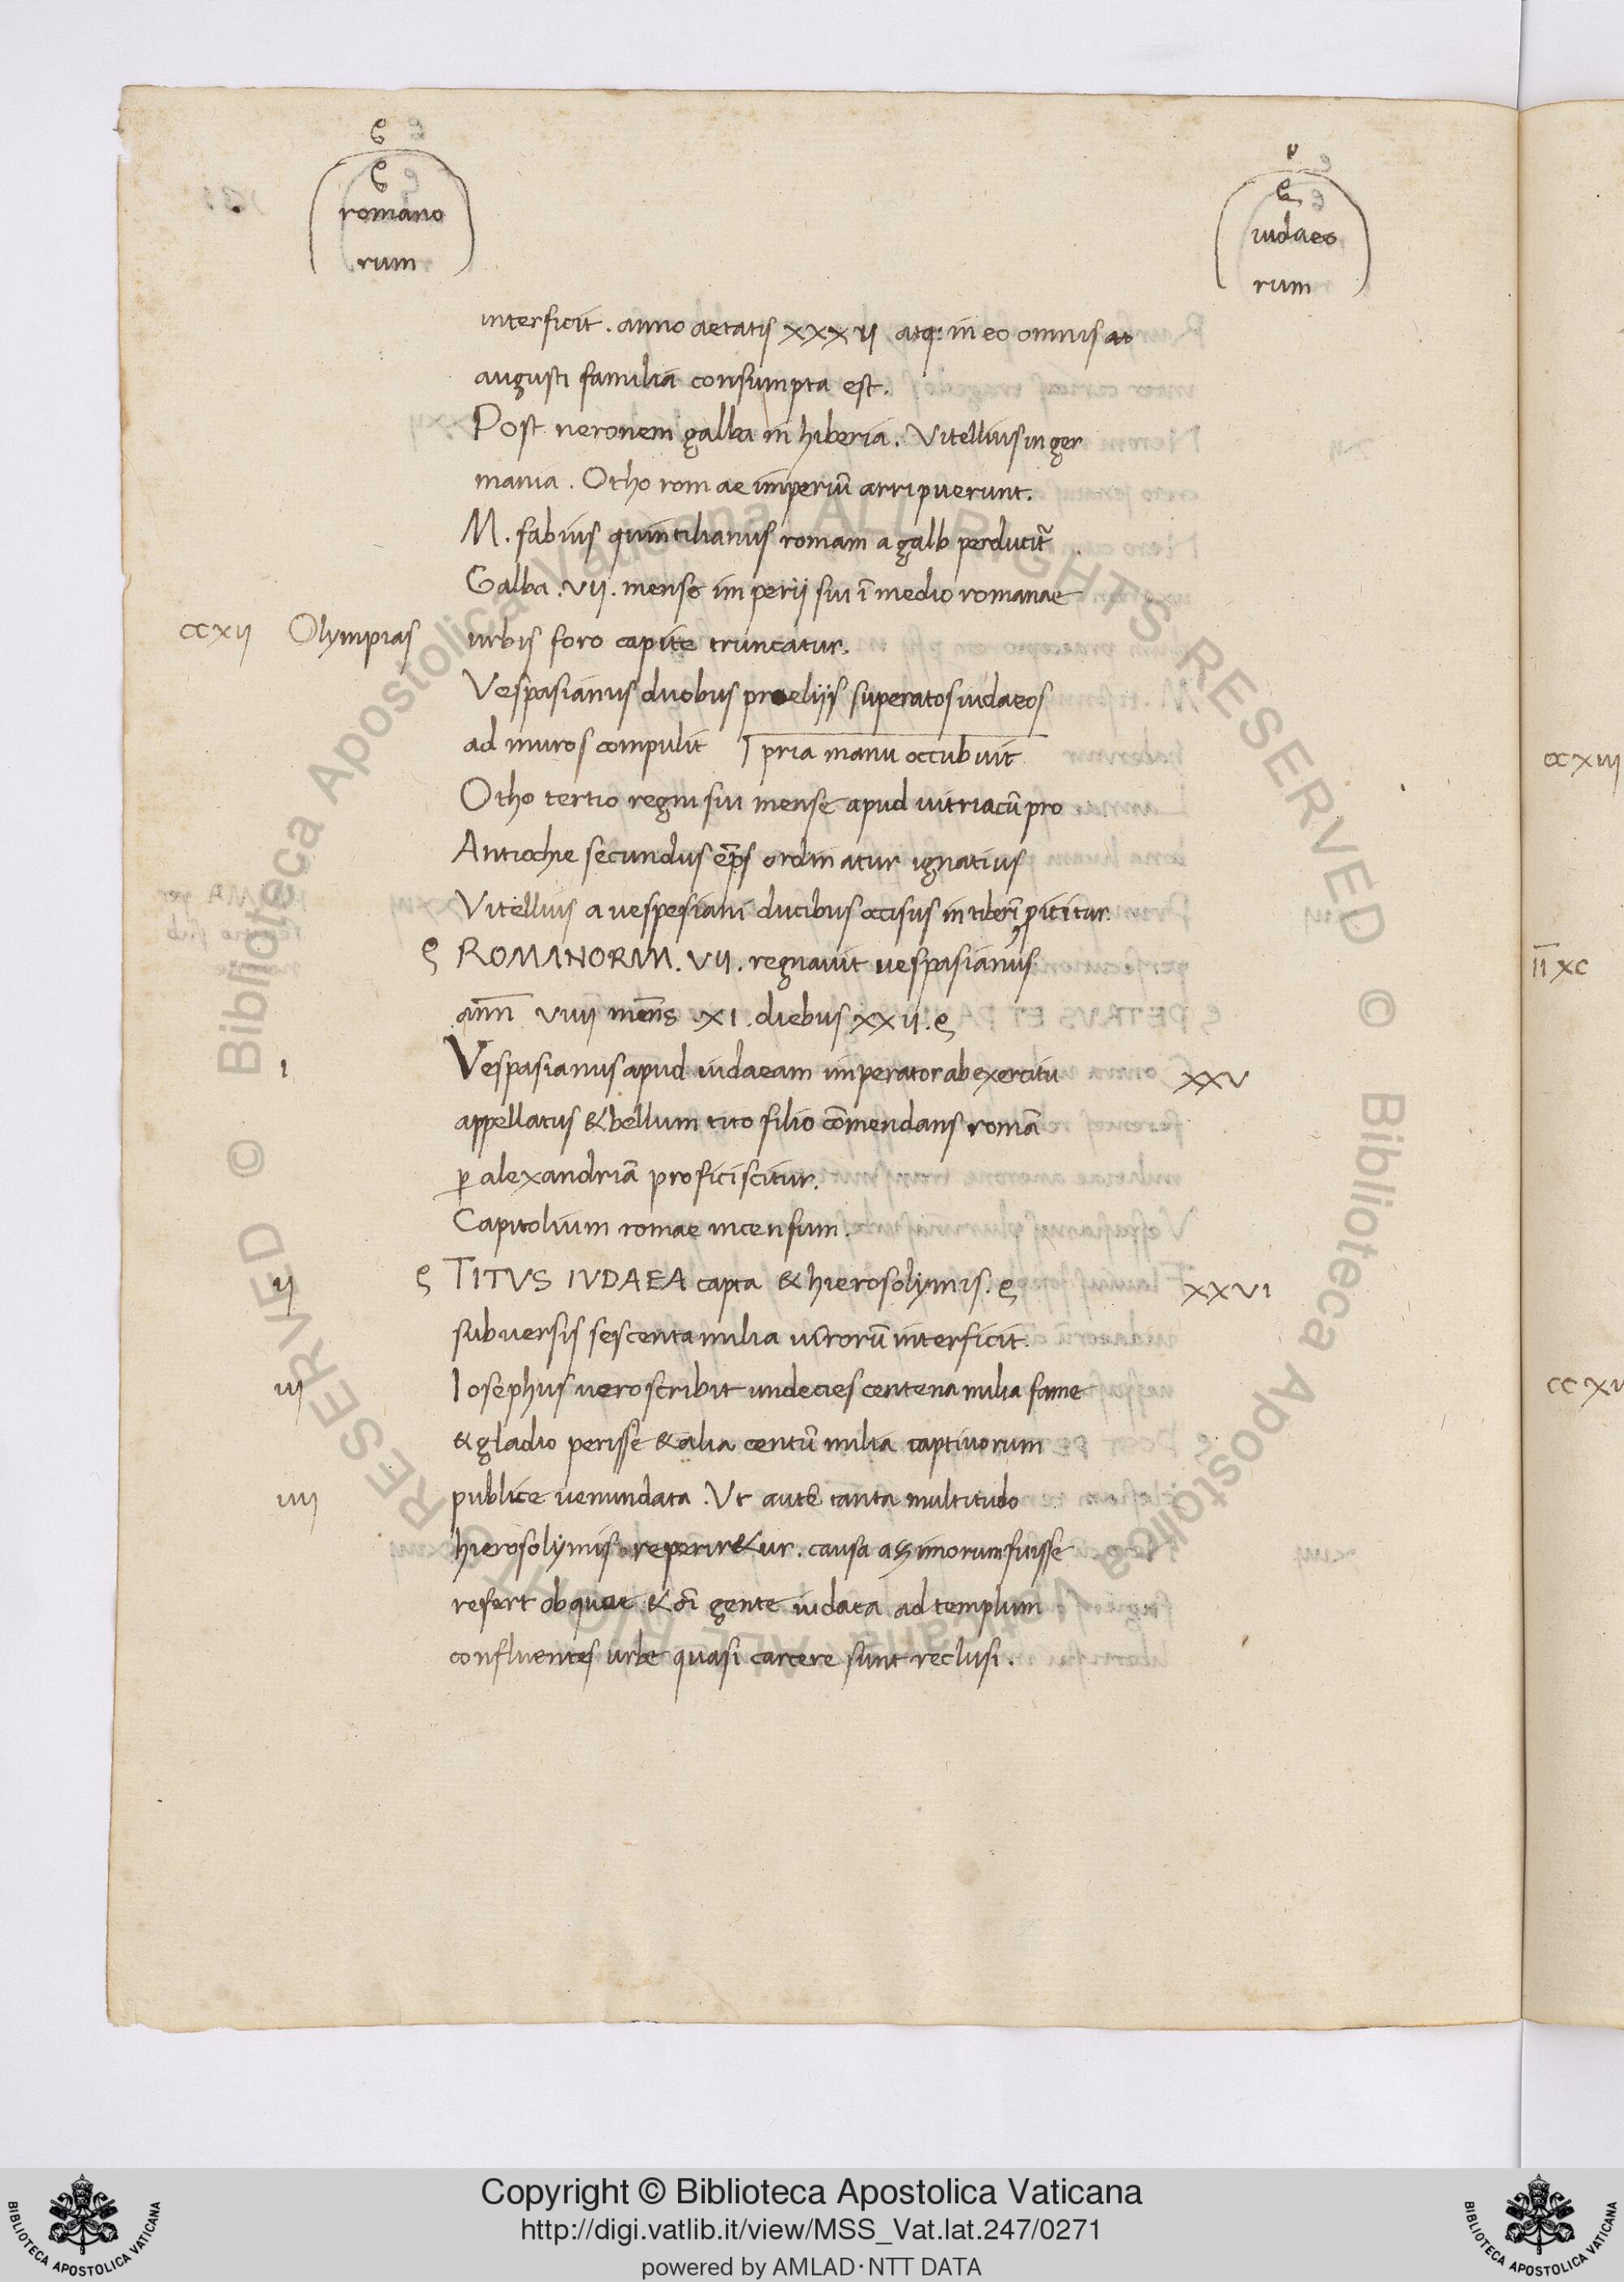 romano
rum
iudaeo
rum
interficit . anno aetatis xxxii atq: in eo omnis
augusti familia consumpta est.
Post neronem galba in hiberia . Vitellius in ger
mania . Otho romae imperiū arripuerunt.
M. fabius quintilianus romam a galb perducit̃
Galba . vii . mense imperii sui ī medio romanae
ccxii Olympias urbis foro capite truncatur.
Vespasianus duobus proeliis superatos iudaeos
ad muros compulit pria manu occubuit
Otho tertio regni sui mense apud uitriacū pro
Antiochie secundus ep̄s ordinatur ignatius
Vitellius a vespesiani ducibus occisus in tiberī
ROMANORVM . VII . regnauit uespasianus
ann̄ viiii mens̄ . XI . diebus xxii .
i Vespasianus apud iudaeam imperator ab exercitu xxv
appellatus & bellum tito filio cōmendans romā
p alexandriā proficiscitur.
Capitolium romae incensum .
ii TITVS IVDAEA capta & hierosolymis . xxvi
subuersis sescenta milia uirorū interficit.
iii Iosephus uero scribit undecies centena milia fame
& gladio perisse & alia centū milia captiuorum
iiii publice uenundata . Vt autē tanta multitudo
hierosolymis reperir&ur . causa fuisse
refert ob & gente iudaea ad templum
confluentes urbe quasi carcere sunt reclusi .
ccxiii
IIxc
Copyright © Biblioteca Apostolica Vaticana
http://digi.vatlib.it/view/MSS_Vat.lat.247/0271
powered by AMLAD·NTT DATA
BIBLIOTECA APOSTOLICA VATICANA
BIBLIOTECA APOSTOLICA VATICANA